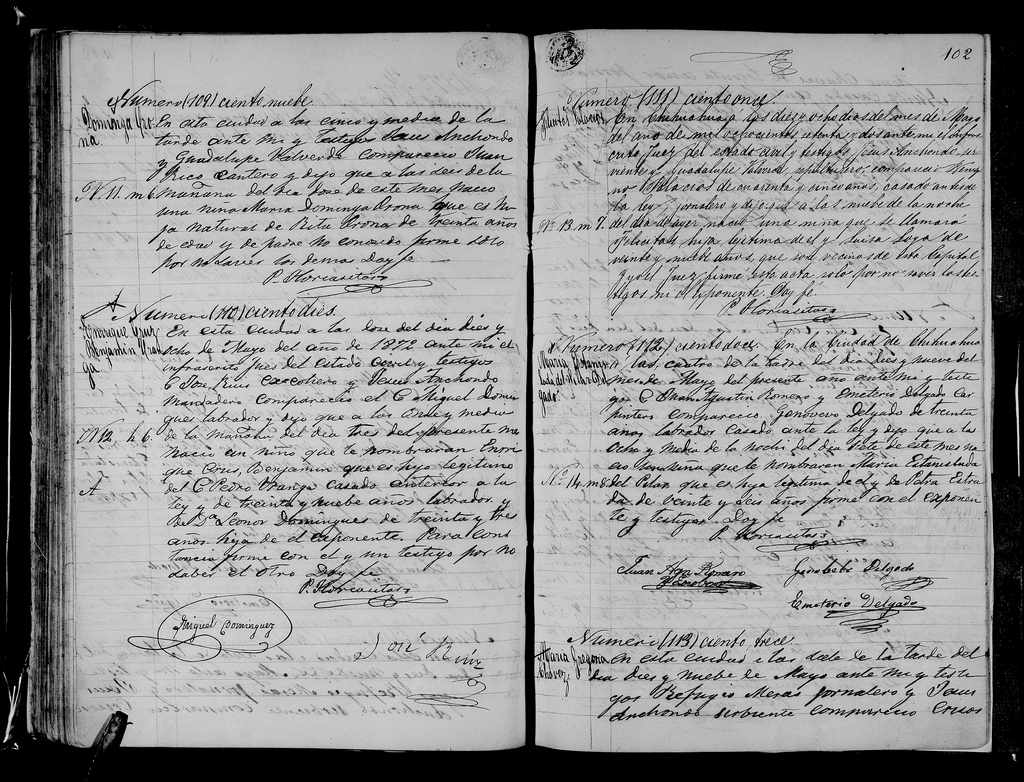 Numero (109) ciento nuebe
Dominga Oro
na
En esta ciudad a las cinco y media de la
tarde ante mi y testigos Jesus Anchondo
y Guadalupe Valverde comparecio Juan
Rico cantero y dijo que a las seis de la
N. 11. m 6. mañana del dia dose de este mes nacio
una niña Maria Dominga Orona que es hi
ja natural de Rita Orona de treinta años
de edad y de padre no conosido firme solo
por no saver los demas Doy fe
P. Horcasitas
Numero (110) ciento dies.
Enrrique Cruz
Benjamin Uran
ga
En esta ciudad a las dose del dia dies y
ocho de Mayo del año de 1872 ante mi el
infrascrito Jues del estado civil y testigos
C. José Ruis cochero y Jesus Anchondo
mandadero comparecio el C Miguel Domin
gues labrador y dijo que a las onse y media
N 12. h 6. de la mañana del dia tres del presente mes
nacio un niño que te nombraran Enrri
que Crus, Benjamin que es hijo legitimo
A del C Pedro Uranga casado anterior a la
ley y de treinta y nuebe años labrador y
de Dª Leonor Domingues de treinta y tres
años hija de el exponente. Para cons
tancia firme con el y un testigo por no
saber el otro Doy fe
P. Horcasitas
Miguel Dominguez
José Ruiz
102
Numero (111) ciento once
Felicitas Palacios
En Chihuahua a los dies y ocho dias del mes de Mayo
del año de mil ochocientos setenta y dos ante mi el infras
crito Juez del estado civil y testigos Jesus Anchondo sir
viente y Guadalupe Valverde sepulturero, comparecio
no Palacios de cuarenta y cinco años, casado antes de
la ley jornalero y dijo que a las nuebe de la noche
Nº 13. m 7. del dia de ayer nacio una niña que se llamará
Felicitas hija legitima de el y Luisa Loya de
veinte y nuebe años, que son vecinos de esta Capital
y yo el Juez firme esta acta solo por no saver los tes
tigos ni el esponente. Doy fé.
P. Horcasitas
Numero (112) ciento doce. En la ciudad de Chihuahua
Maria Estanis
lada del Pilar Del
gado
a las cuatro de la tarde del dia dies y nueve del
mes de Mayo del presente año ante mi y testi
gos C. Juan Agustin Romero y Emeterio Delgado car
pintero comparecio Genovevo Delgado de treinta
años labrador casado ante la ley y dijo que a la
ocho y media de la noche del dia siete de este mes na
cio una niña que te nombraran Maria Estanislada
Nº 14. m 8. del Pilar que es hija legitima de el y de Petra Estra
da de veinte y seis años firme con el exponen
te y testigos. Doy fe
P. Horcasitas
Juan Agn. Romero
Genobebo Delgado
Emeterio Delgado
Numero (113) ciento trece
Maria Gregoria
Chavez
En esta ciudad a las siete de la tarde del
dia dies y nuebe de Mayo ante mi y testi
gos Refugio Meras jornalero y Jesus
Anchondo sirbiente comparecio